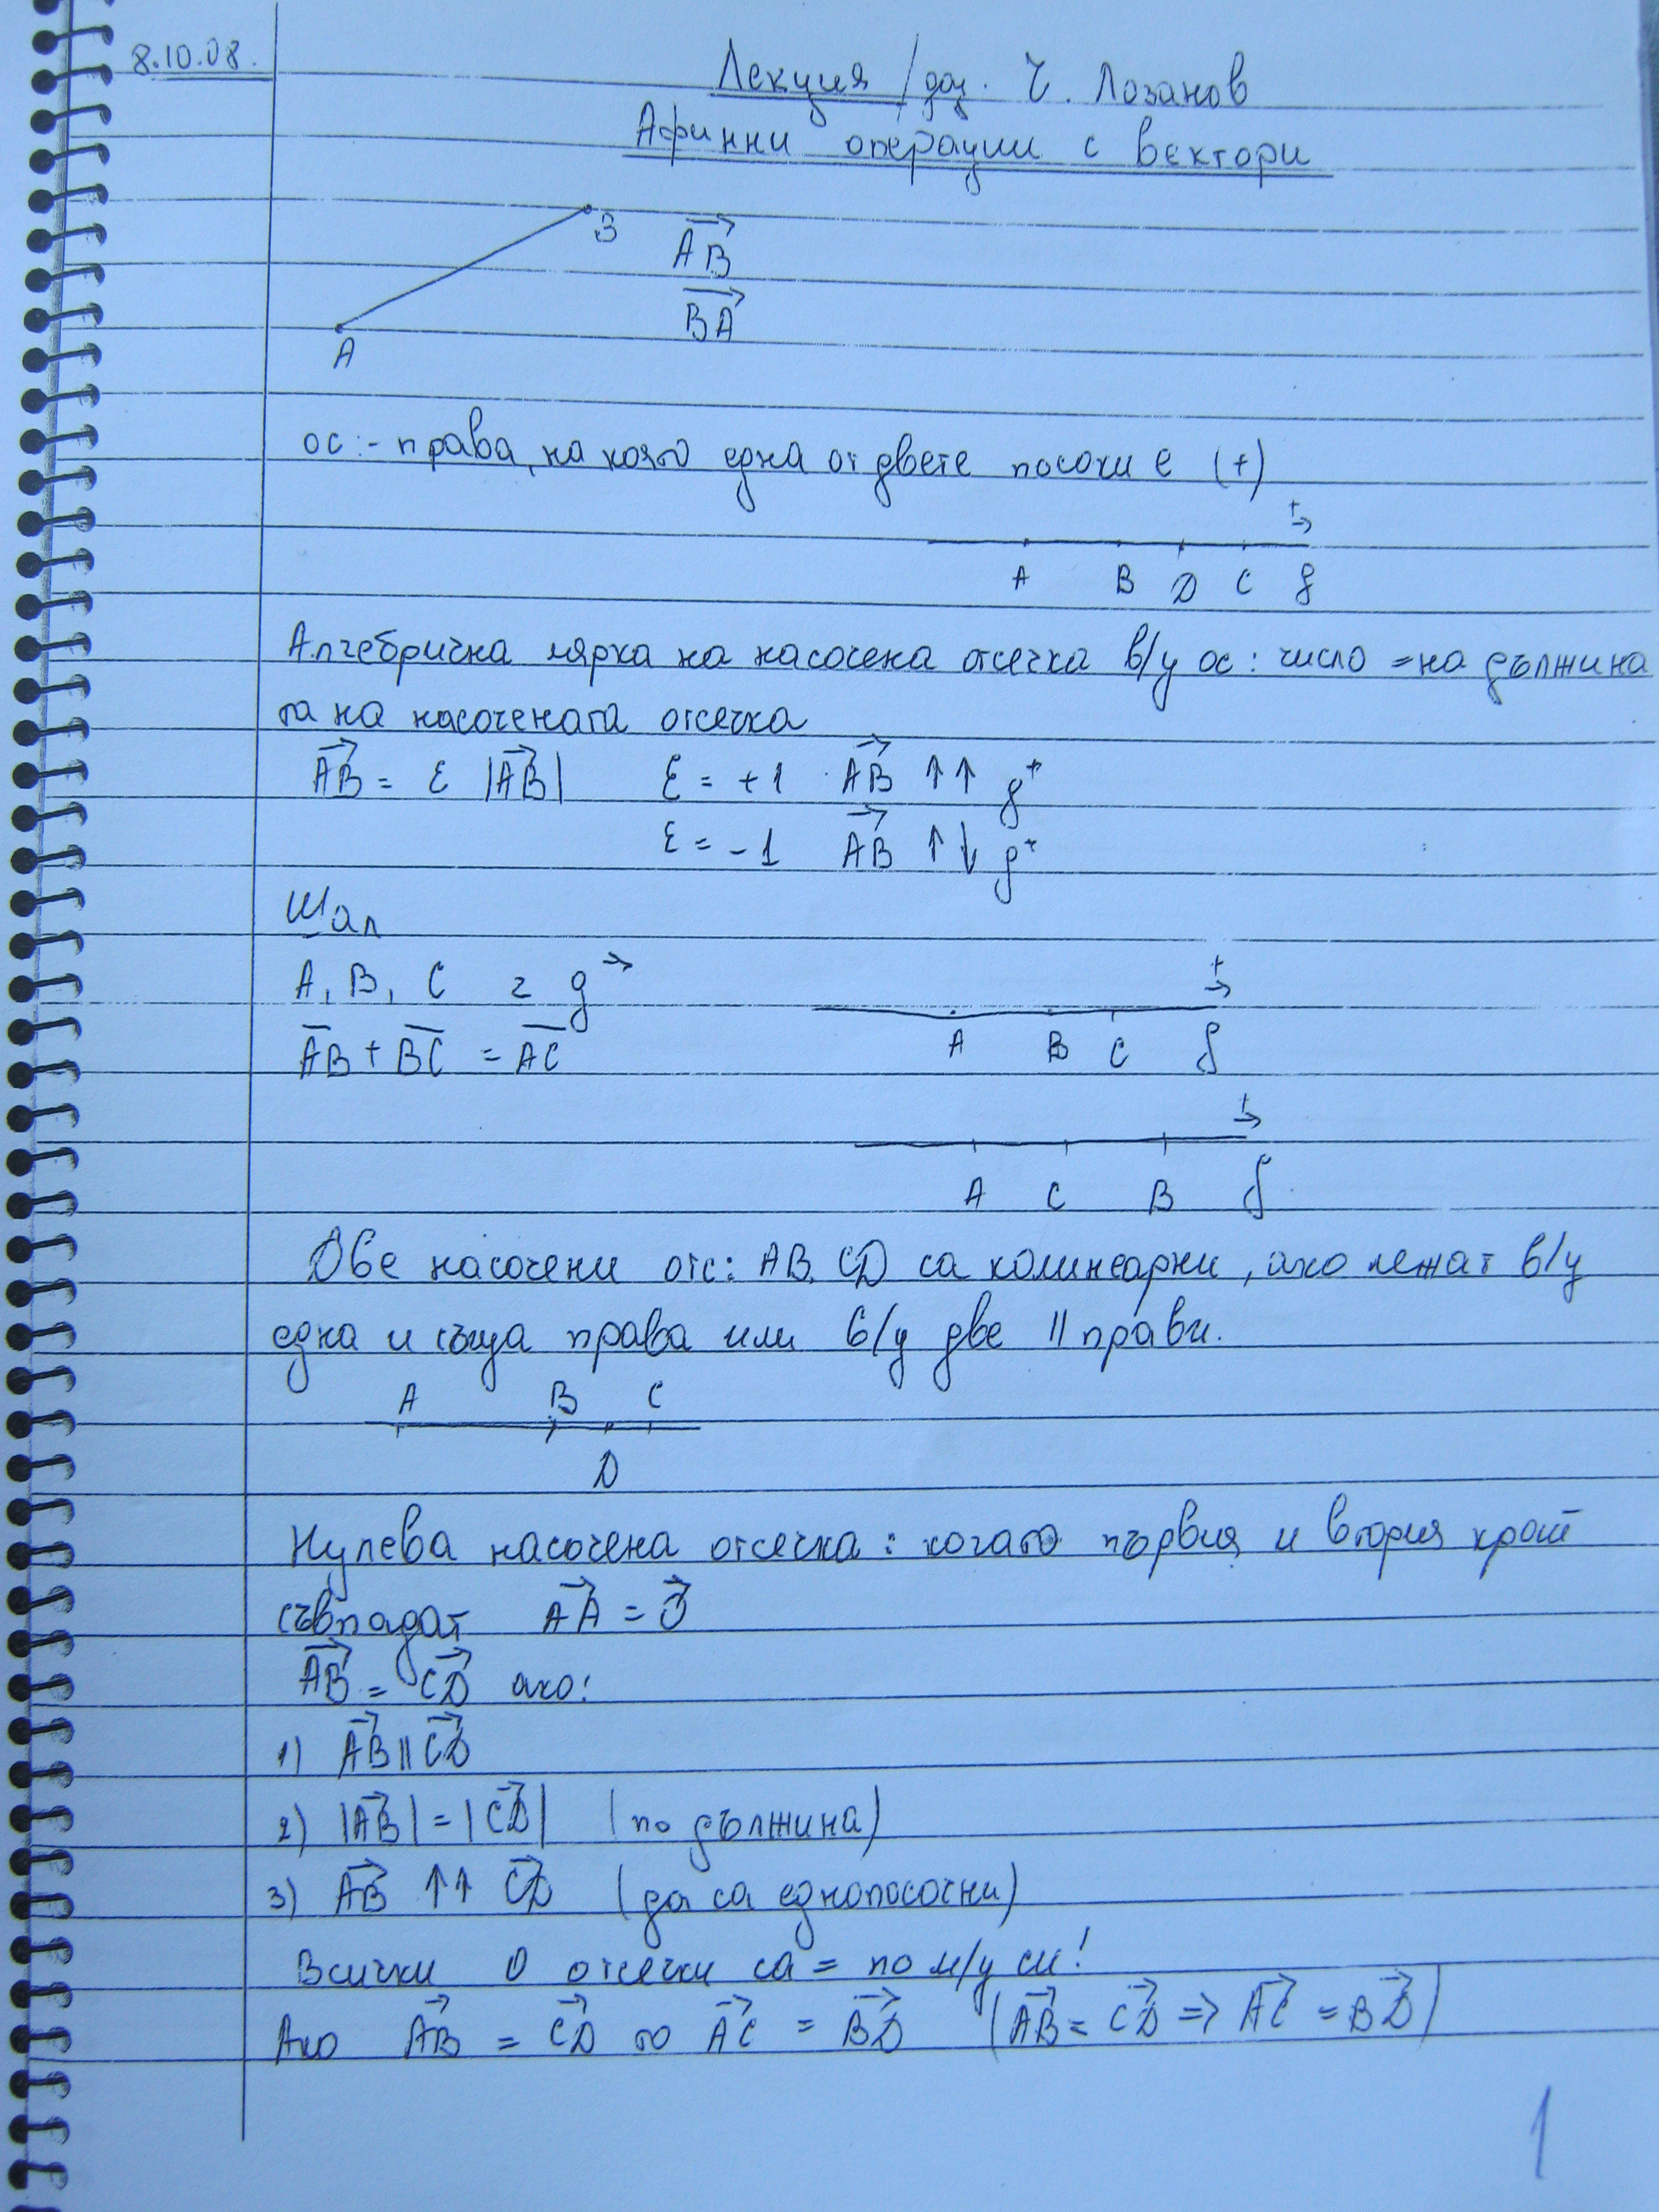 8.10.08.
Лекция /доц. Ч. Лозанов
Афинни операции с вектори
B
A
AB→
BA→
ос:- права, на която една от двете посоки е (+)
+
→
A B D C g
Алгебрична мярка на насочена отсечка в/у ос: число = на дължина
та на насочената отсечка
AB→ = ε |AB→| ε = +1 AB→ ↑↑ g⁺
ε = -1 AB→ ↑↓ g⁺
Шал
A, B, C z g→
A̅B̅ + B̅C̅ = A̅C̅
+
→
A B C g
+
→
A C B g
Две насочени отс: AB, CD са колинеарни, ако лежат в/у
една и съща права или в/у две || прави.
A B C
D
Нулева насочена отсечка: когато първия и втория край
съвпадат AA→ = O→
AB→ = CD→ ако:
1) AB→ || CD→
2) |AB→| = |CD→| (по дължина)
3) AB→ ↑↑ CD→ (да са еднопосочни)
Всички 0 отсечки са = по м/у си!
Ако AB→ = CD→ то AC→ = BD→ (AB→ = CD→ => AC→ = BD→)
1